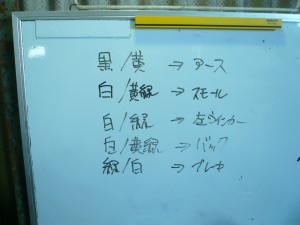 黒/黄 → アース
白/黄緑 → スモール
白/緑 → 左ウインカー
白/黄緑 → バック
緑/白 → ブレーキ